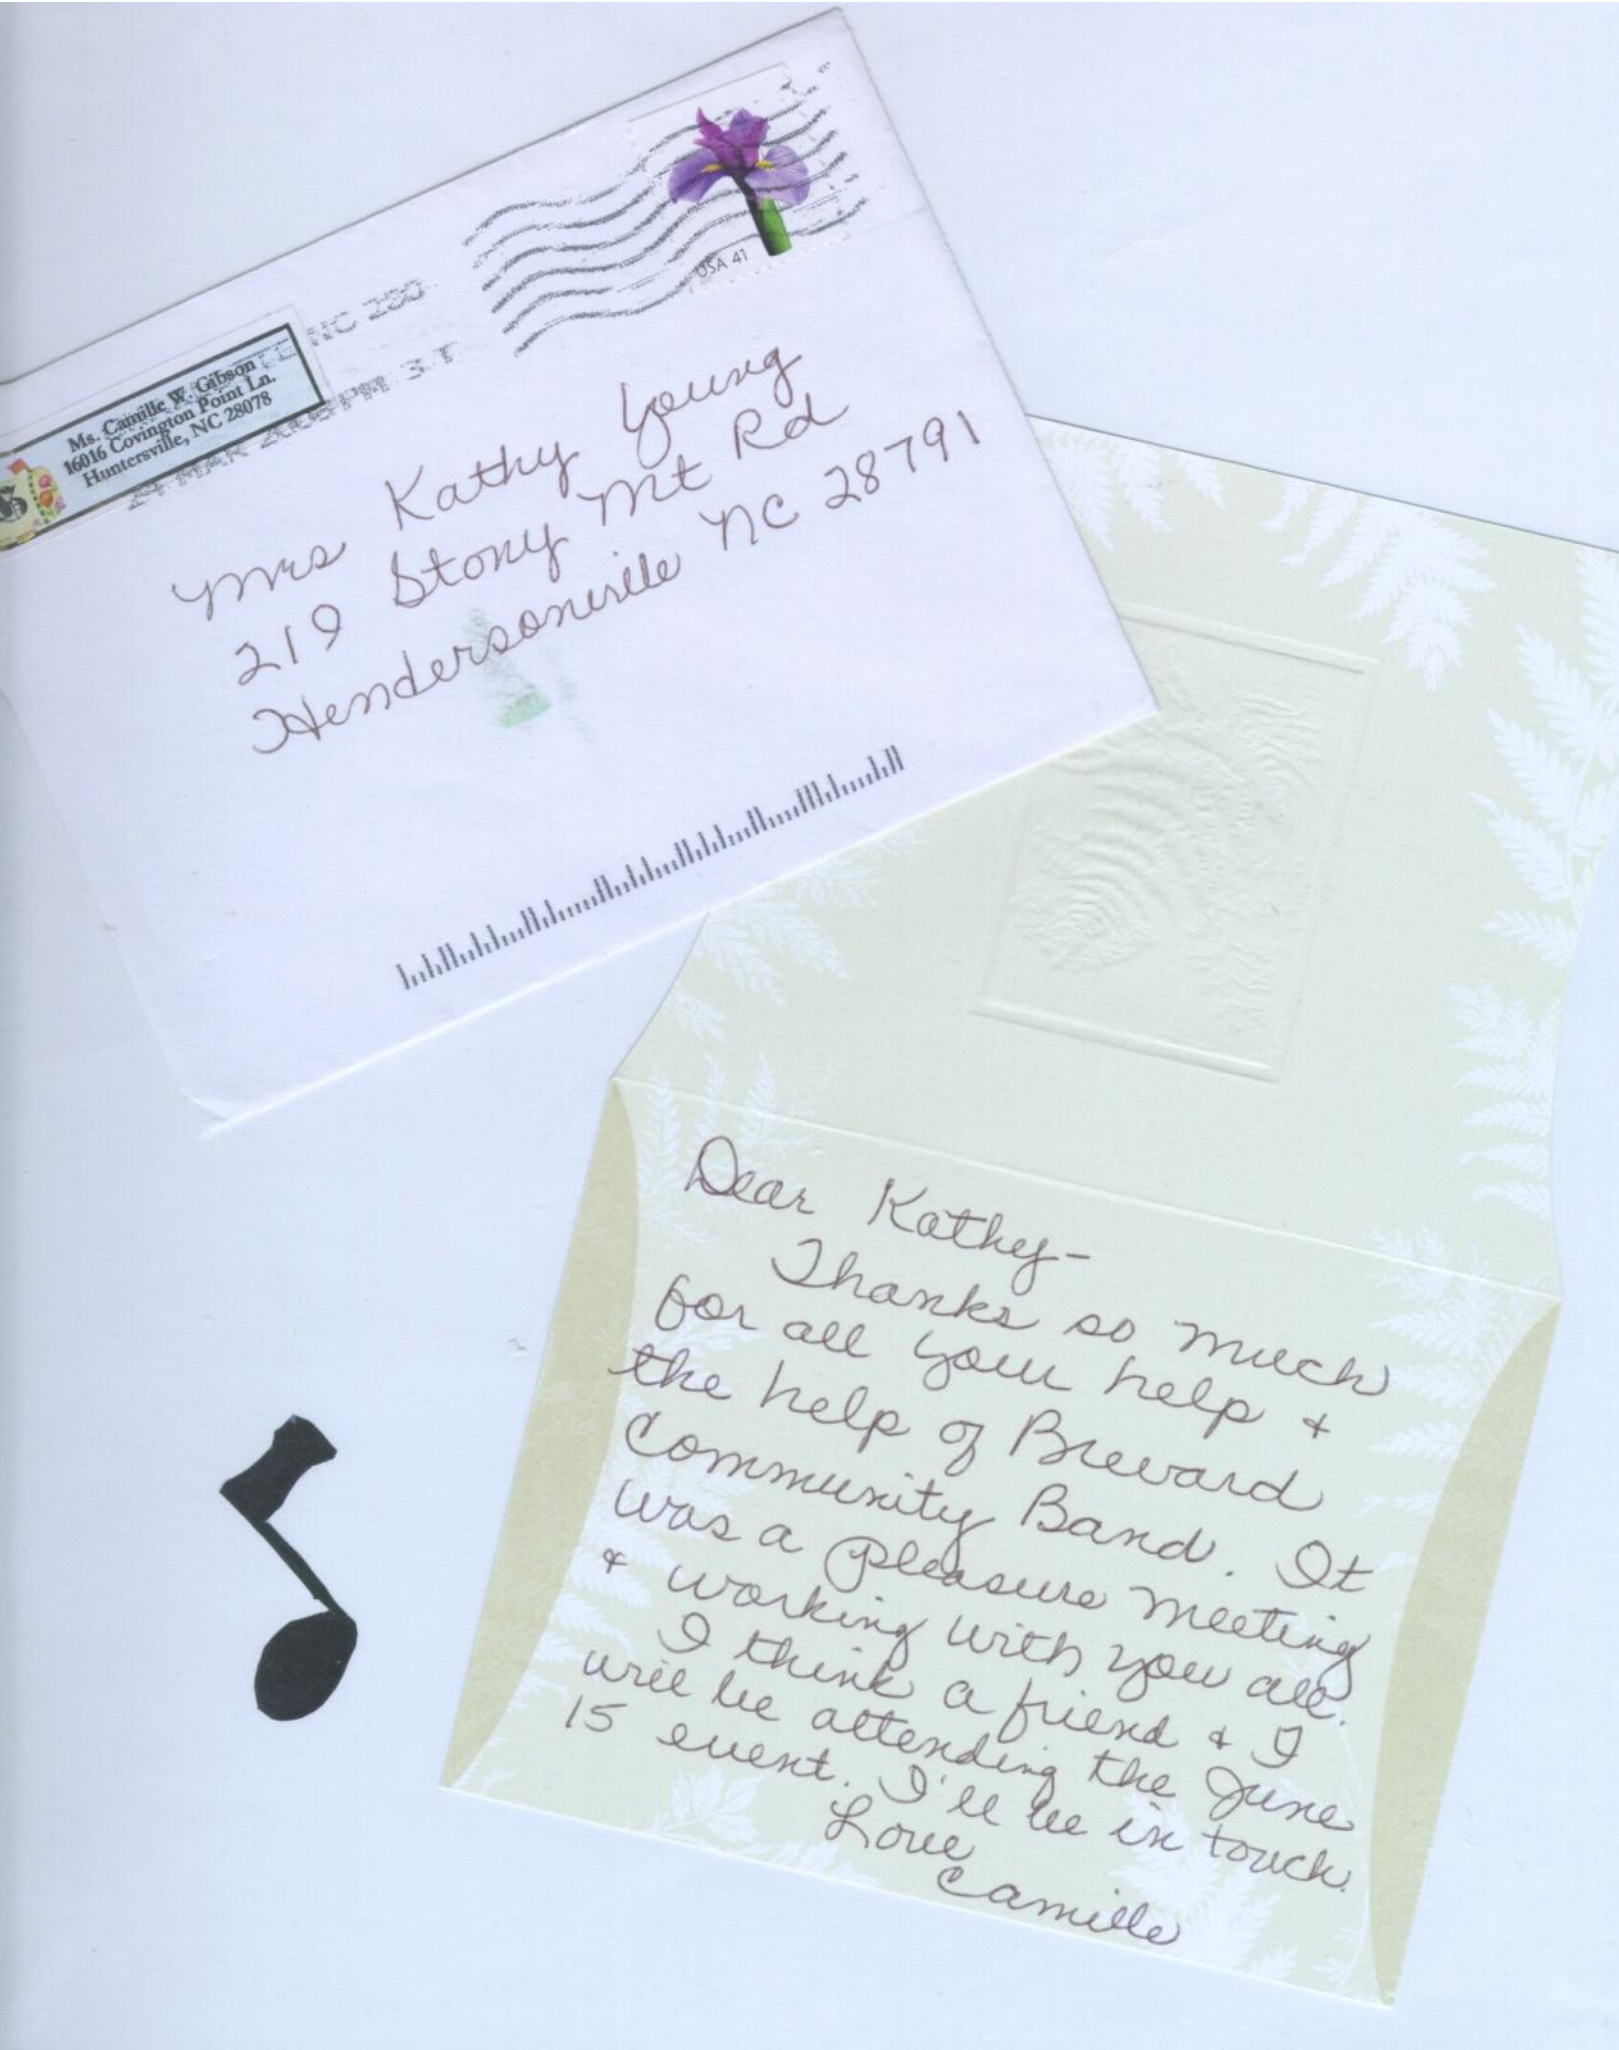 USA 41
NC 280
PM 3 T
Ms. Camille W. Gibson
16016 Covington Point Ln.
Huntersville, NC 28078
Mrs Kathy Young
219 Stony Mt Rd
Hendersonville NC 28791
Dear Kathy-
Thanks so much
for all your help &
the help of Brevard
Community Band. It
was a pleasure meeting
& working with you all.
I think a friend & I
will be attending the June
15 event. I'll be in touch.
Love
Camille